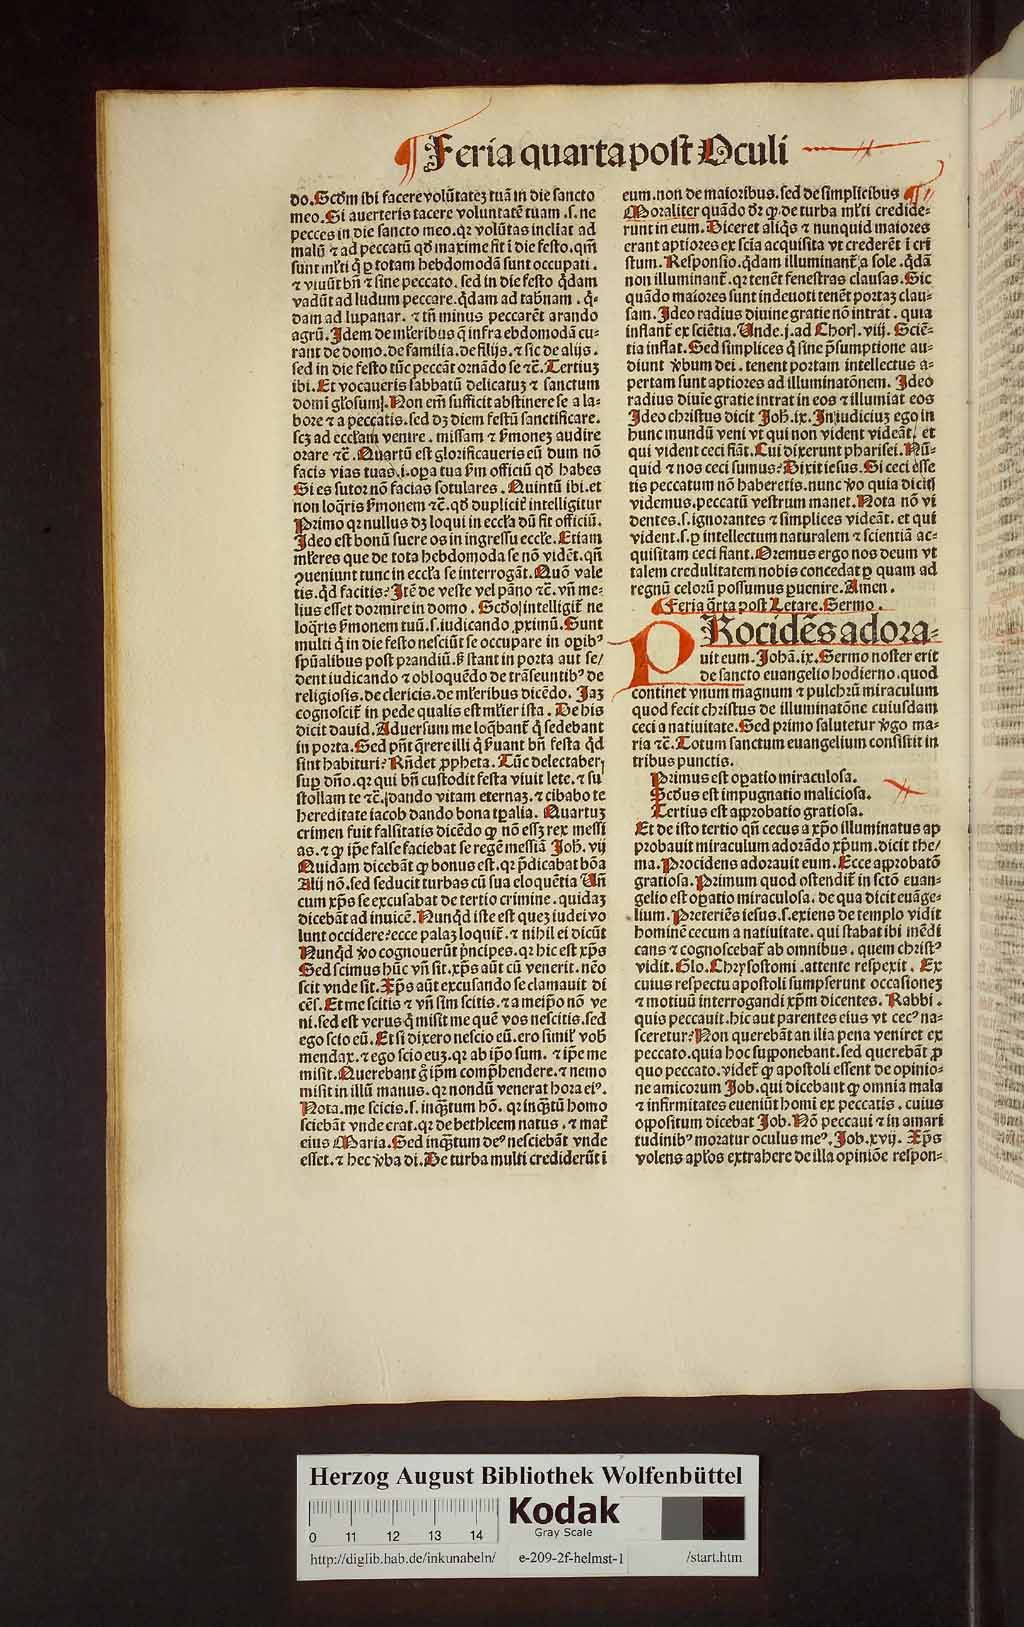 Feria quarta post Oculi
do. Scd̄m ibi facere volūtatez tuā in die sancto
meo. Si auerteris tacere voluntatē tuam .s. ne
pecces in die sancto meo. qꝛ volūtas incliat ad
malū ⁊ ad peccatū qd̄ maxime fit ī die festo. qm̄
sunt ml̕ti q̄ ꝑ totam hebdomodā sunt occupati.
⁊ viuūt bn̄ ⁊ sine peccato. sed in die festo q̇dam
vadūt ad ludum peccare. q̇dam ad tab̄nam . q̇-
dam ad lupanar. ⁊ tn̄ minus peccarēt arando
agrū. Idem de ml̕eribus q̄ infra ebdomodā cu-
rant de domo. de familia. de filijs. ⁊ sic de alijs.
sed in die festo tūc peccāt ornādo se ⁊c̄. Tertiuz
ibi. Et vocaueris sabbatū delicatuz ⁊ sanctum
domī gl̕osum. Non em̄ sufficit abstinere se a la-
bore ⁊ a peccatis. sed dꝫ diem festū sanctificare.
scꝫ ad eccl̕am venire . missam ⁊ s̕monez audire
orare ⁊c̄. Quartū est glorificaueris eū dum nō
facis vias tuas .i. oꝑa tua s̕m officiū qd̄ habes
Si es sutor nō facias sotulares. Quintū ibi. et
non loq̄ris s̕monem ⁊c̄. qd̄ duplicit̄ intelligitur
Primo qꝛ nullus dꝫ loqui in eccl̕a dū fit officiū.
Ideo est bonū suere os in ingressu eccl̕e. Etiam
ml̕eres que de tota hebdomoda se nō vidēt. qn̄
ꝯueniunt tunc in eccl̕a se interrogāt. Quō vale
tis. qd̄ facitis? Itē de veste vel pāno ⁊c̄. vn̄ me-
lius esset dormire in domo . Scd̄o intelligit̄ ne
loq̄ris s̕monem tuū .s. iudicando ꝓximū. Sunt
multi q̇ in die festo nesciūt se occupare in oꝑibꝰ
spūalibus post prandiū. s̕ stant in porta aut se/
dent iudicando ⁊ obloquēdo de trāseuntibꝰ de
religiosis. de clericis. de ml̕eribus dicēdo. Jaꝫ
cognoscit̄ in pede qualis est ml̕ier ista . De his
dicit dauid. Aduersum me loq̄bant̄ q̇ sedebant
in porta. Sed pn̄t q̄rere illi q̇ s̕uant bn̄ festa q̇d
sint habituri? Rn̄det ꝓpheta. Tūc delectaberꝭ
suꝑ dn̄o. qꝛ qui bn̄ custodit festa viuit lete. ⁊ su
stollam te ⁊c̄. dando vitam eternaꝫ. ⁊ cibabo te
hereditate iacob dando bona tꝑalia. Quartuꝫ
crimen fuit falsitatis dicēdo ꝙ nō essꝫ rex messi
as. ⁊ ꝙ ip̄e false faciebat se regē messiā Joh̄. vij
Quidam dicebāt ꝙ bonus est. qꝛ p̄dicabat bōa
Alij nō. sed seducit turbas cū sua eloquētia Vn̄
cum xp̄s se excusabat de tertio crimine. quidaꝫ
dicebāt ad inuicē. Nunqd̄ iste est quez iudei vo
lunt occidere? ecce palaꝫ loquit̄. ⁊ nihil ei dicūt
Nunqd̄ v̕o cognouerūt p̄ncipes. qꝛ hic est xp̄s
Sed scimus hūc vn̄ sit. xp̄s aūt cū venerit. nēo
scit vnde sit. Xp̄s aūt excusando se clamauit di
cēs. Et me scitis ⁊ vn̄ sim scitis. ⁊ a meip̄o nō ve
ni. sed est verus q̇ misit me quē vos nescitis. sed
ego scio eū. Et si dixero nescio eū. ero simil̕ vob̄
mendax. ⁊ ego scio euꝫ. qꝛ ab ip̄o sum. ⁊ ip̄e me
misit. Querebant g̊ ip̄m comp̄hendere. ⁊ nemo
misit in illū manus. qꝛ nondū venerat hora eiꝰ.
Nota. me scitis .s. inq̄tum hō. qꝛ inq̄tū homo
sciebāt vnde erat. qꝛ de bethleem natus . ⁊ mat̄
eius Maria. Sed inq̄tum deꝰ nesciebāt vnde
esset. ⁊ hec v̕ba di. De turba multi crediderūt ī
eum. non de maioribus. sed de simplicibus
Moraliter quādo dr̄ ꝙ de turba ml̕ti credide-
runt in eum. Diceret aliq̇s ⁊ nunquid maiores
erant aptiores ex scīa acquisita vt crederēt ī cri
stum. Responsio. q̇dam illuminant̄ a sole . q̇dā
non illuminant̄. qꝛ tenēt fenestras clausas. Sic
quādo maiores sunt indeuoti tenēt portaꝫ clau-
sam. Ideo radius diuine gratie nō intrat . quia
inflant̄ ex sciētia. Unde .j. ad Choꝝ. viij. Sciē-
tia inflat. Sed simplices q̇ sine p̄sumptione au-
diunt v̕bum dei . tenent portam intellectus a-
pertam sunt aptiores ad illuminatōnem. Ideo
radius diuīe gratie intrat in eos ⁊ illumiat eos
Ideo christus dicit Joh̄. ix. In iudiciuꝫ ego in
hunc mundū veni vt qui non vident videāt. et
qui vident ceci fiāt. Cui dixerunt pharisei. Nū-
quid ⁊ nos ceci sumus? Dixit iesus. Si ceci esse
tis peccatum nō haberetis. nunc v̕o quia dicitꝭ
videmus. peccatū vestrum manet. Nota nō vi
dentes .s. ignorantes ⁊ simplices videāt. et qui
vident .s. ꝑ intellectum naturalem ⁊ scientiā ac-
quisitam ceci fiant. Oremus ergo nos deum vt
talem credulitatem nobis concedat ꝑ quam ad
regnū celorū possumus ꝑuenire. Amen.
Feria q̄rta post Letare. Sermo.
PRocidēs adora-
uit eum. Johā. ix. Sermo noster erit
de sancto euangelio hodierno. quod
continet vnum magnum ⁊ pulchrū miraculum
quod fecit christus de illuminatōne cuiusdam
ceci a natiuitate. Sed primo salutetur v̕go ma-
ria ⁊c̄. Totum sanctum euangelium consistit in
tribus punctis.
Primus est oꝑatio miraculosa.
Scd̄us est impugnatio maliciosa.
Tertius est apꝓbatio gratiosa.
Et de isto tertio qn̄ cecus a xp̄o illuminatus ap
probauit miraculum adorādo xp̄um. dicit the/
ma. Procidens adorauit eum. Ecce apꝓbatō
gratiosa. Primum quod ostendit̄ in sctō euan-
gelio est oꝑatio miraculosa. de qua dicit euāge-
lium. Preteriēs iesus .s. exiens de templo vidit
hominē cecum a natiuitate. qui stabat ibi mēdi
cans ⁊ cognoscebat̄ ab omnibus . quem christꝰ
vidit. Glo. Chrysostomi . attente respexit . Ex
cuius respectu apostoli sumpserunt occasionez
⁊ motiuū interrogandi xp̄m dicentes. Rabbi .
quis peccauit. hic aut parentes eius vt cecꝰ na-
sceretur? Non querebāt an ilia pena veniret ex
peccato. quia hoc supponebant. sed querebāt ꝓ
quo peccato. videt̄ ꝙ apostoli essent de opinio-
ne amicorum Job. qui dicebant ꝙ omnia mala
⁊ infirmitates eueniūt homī ex peccatis . cuius
oppositum dicebat Job. Nō peccaui ⁊ in amari
tudinibꝰ moratur oculus meꝰ. Job. xvij. Xp̄s
volens apl̕os extrahere de illa opiniōe respon-
Herzog August Bibliothek Wolfenbüttel
Kodak
Gray Scale
0 11 12 13 14
http://diglib.hab.de/inkunabeln/ e-209-2f-helmst-1 /start.htm